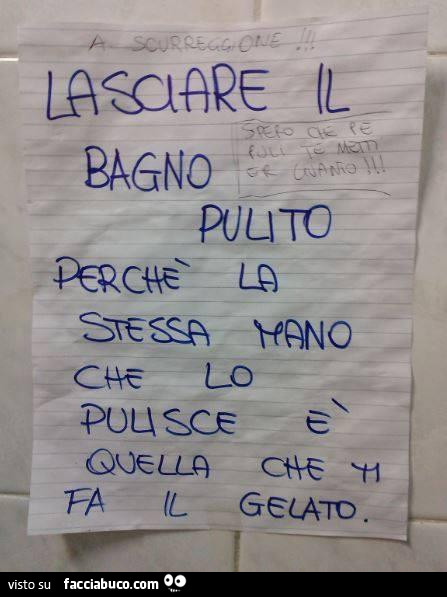 A. SCURREGGIONE!!!
LASCIARE IL
BAGNO
SPERO CHE PE
PULI TE METTI
ER GUANTO!!!
PULITO
PERCHÈ LA
STESSA MANO
CHE LO
PULISCE È
QUELLA CHE TI
FA IL GELATO.
visto su facciabuco.com